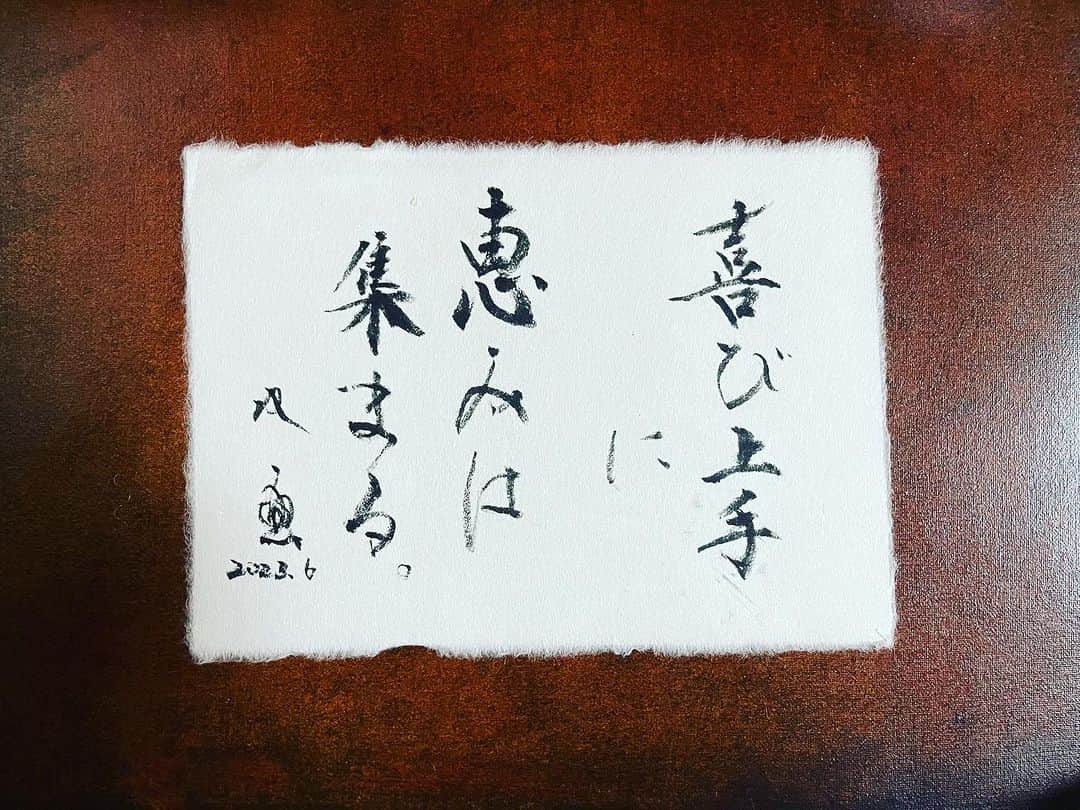 喜び上手
に
恵みは
集まる。
2023.6